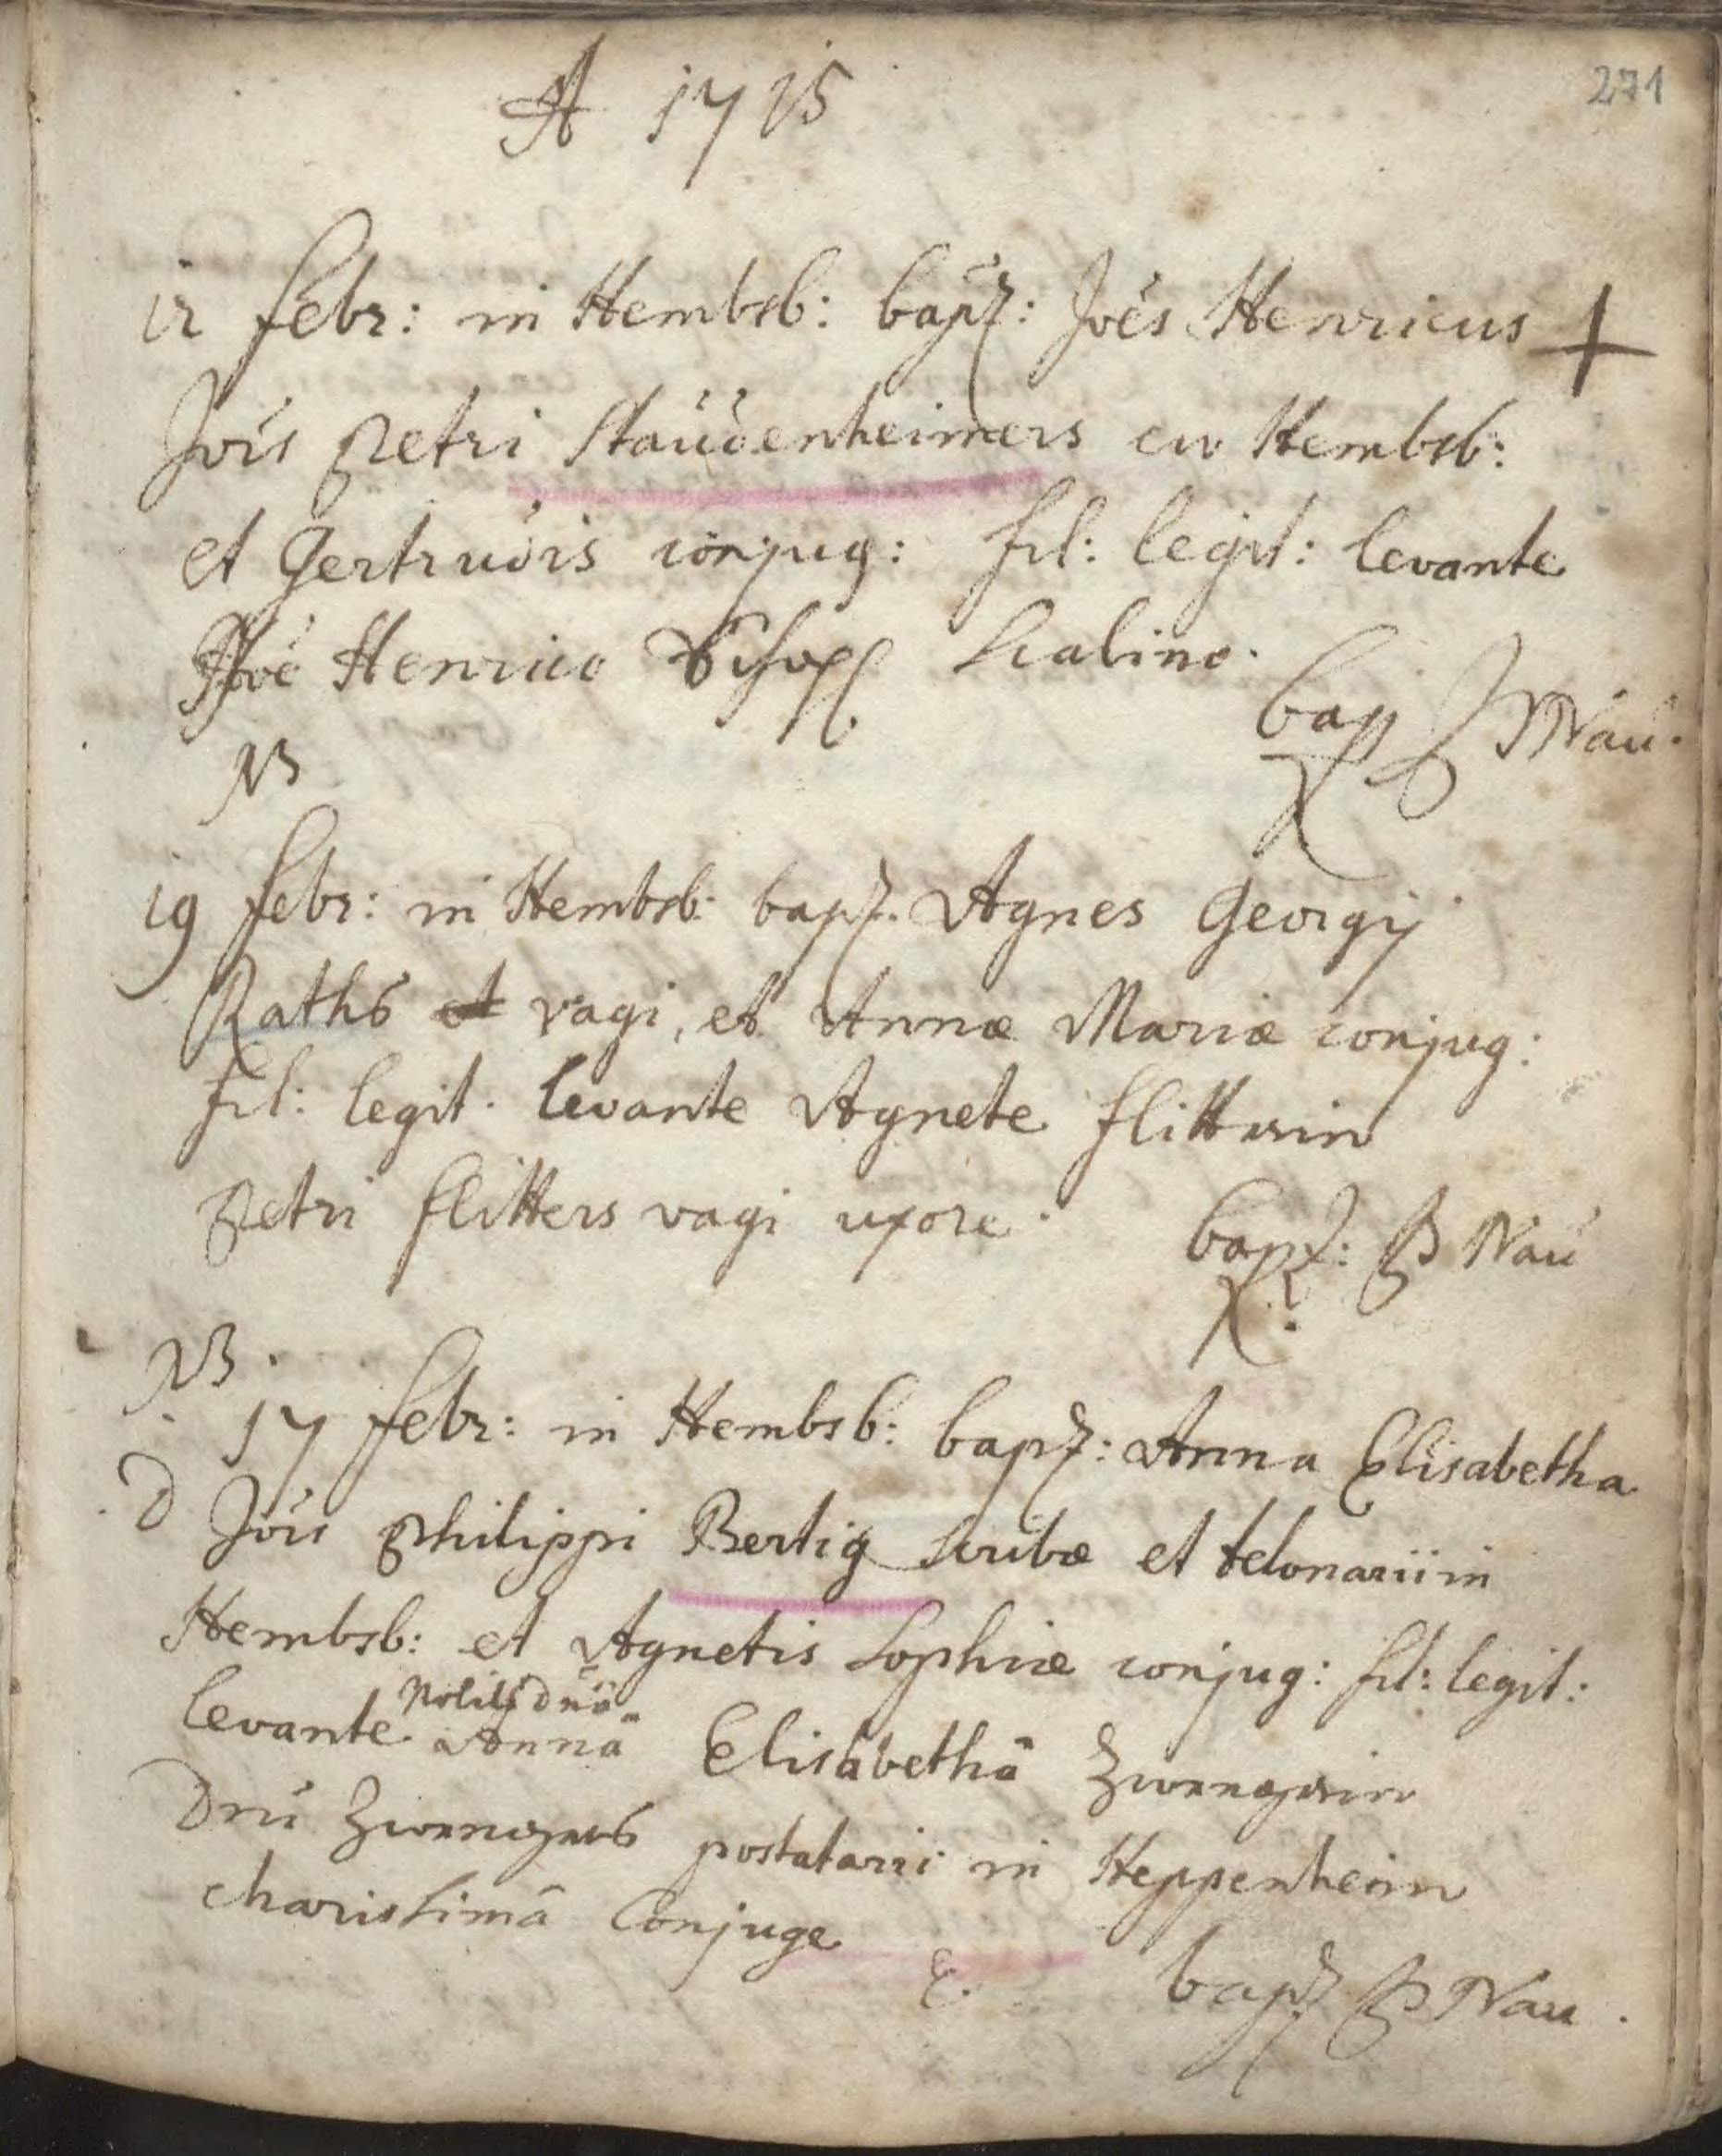 271
A 1715
12 febr: in Hembsb: bapt: Joēs Henricus †
Jois Petri Staudenheimers ex Hembsb:
et Gertrudis conjug: fil: legit: levante
Joē Henrico Scabino.
bapt P Nau.
NB
19 febr: in Hembsb: bapt. Agnes Georgij
Raths vagi, et Annæ Mariæ conjug:
fil: legit. levante Agnete flitterin
Petri flitters vagi uxore.
bapt: P Nau
NB.
17 febr: in Hembsb: bapt: Anna Elisabetha
D Jois Philippi Bertig scribæ et telonarii in
Hembsb: et Agnetis Sophiæ conjug: fil: legit:
Nobili Dnā
levante Annâ Elisabethâ Zwengerin
Dni Zwengers postatarii in Heppenheim
charissimâ Conjuge
bapt P Nau.